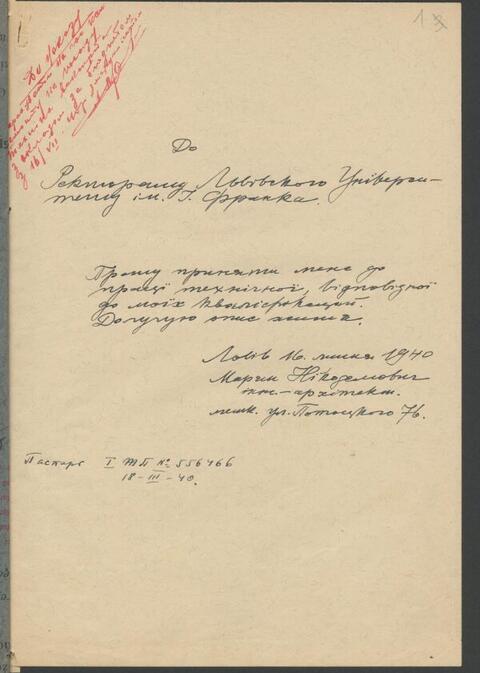 До
Ректорату Львівского Універси-
тету ім. І. Франка.
Прошу приняти мене до
праці технічної, відповідної
до моїх кваліфікацій.
Долучую опис життя.
Львів 16. липня 1940
Марян Нікодемович
інж-архітект.
мешк. ул. Потоцкого 76.
Паспорт I ТП № 556466
18-III-40.
До наказу
16/VII